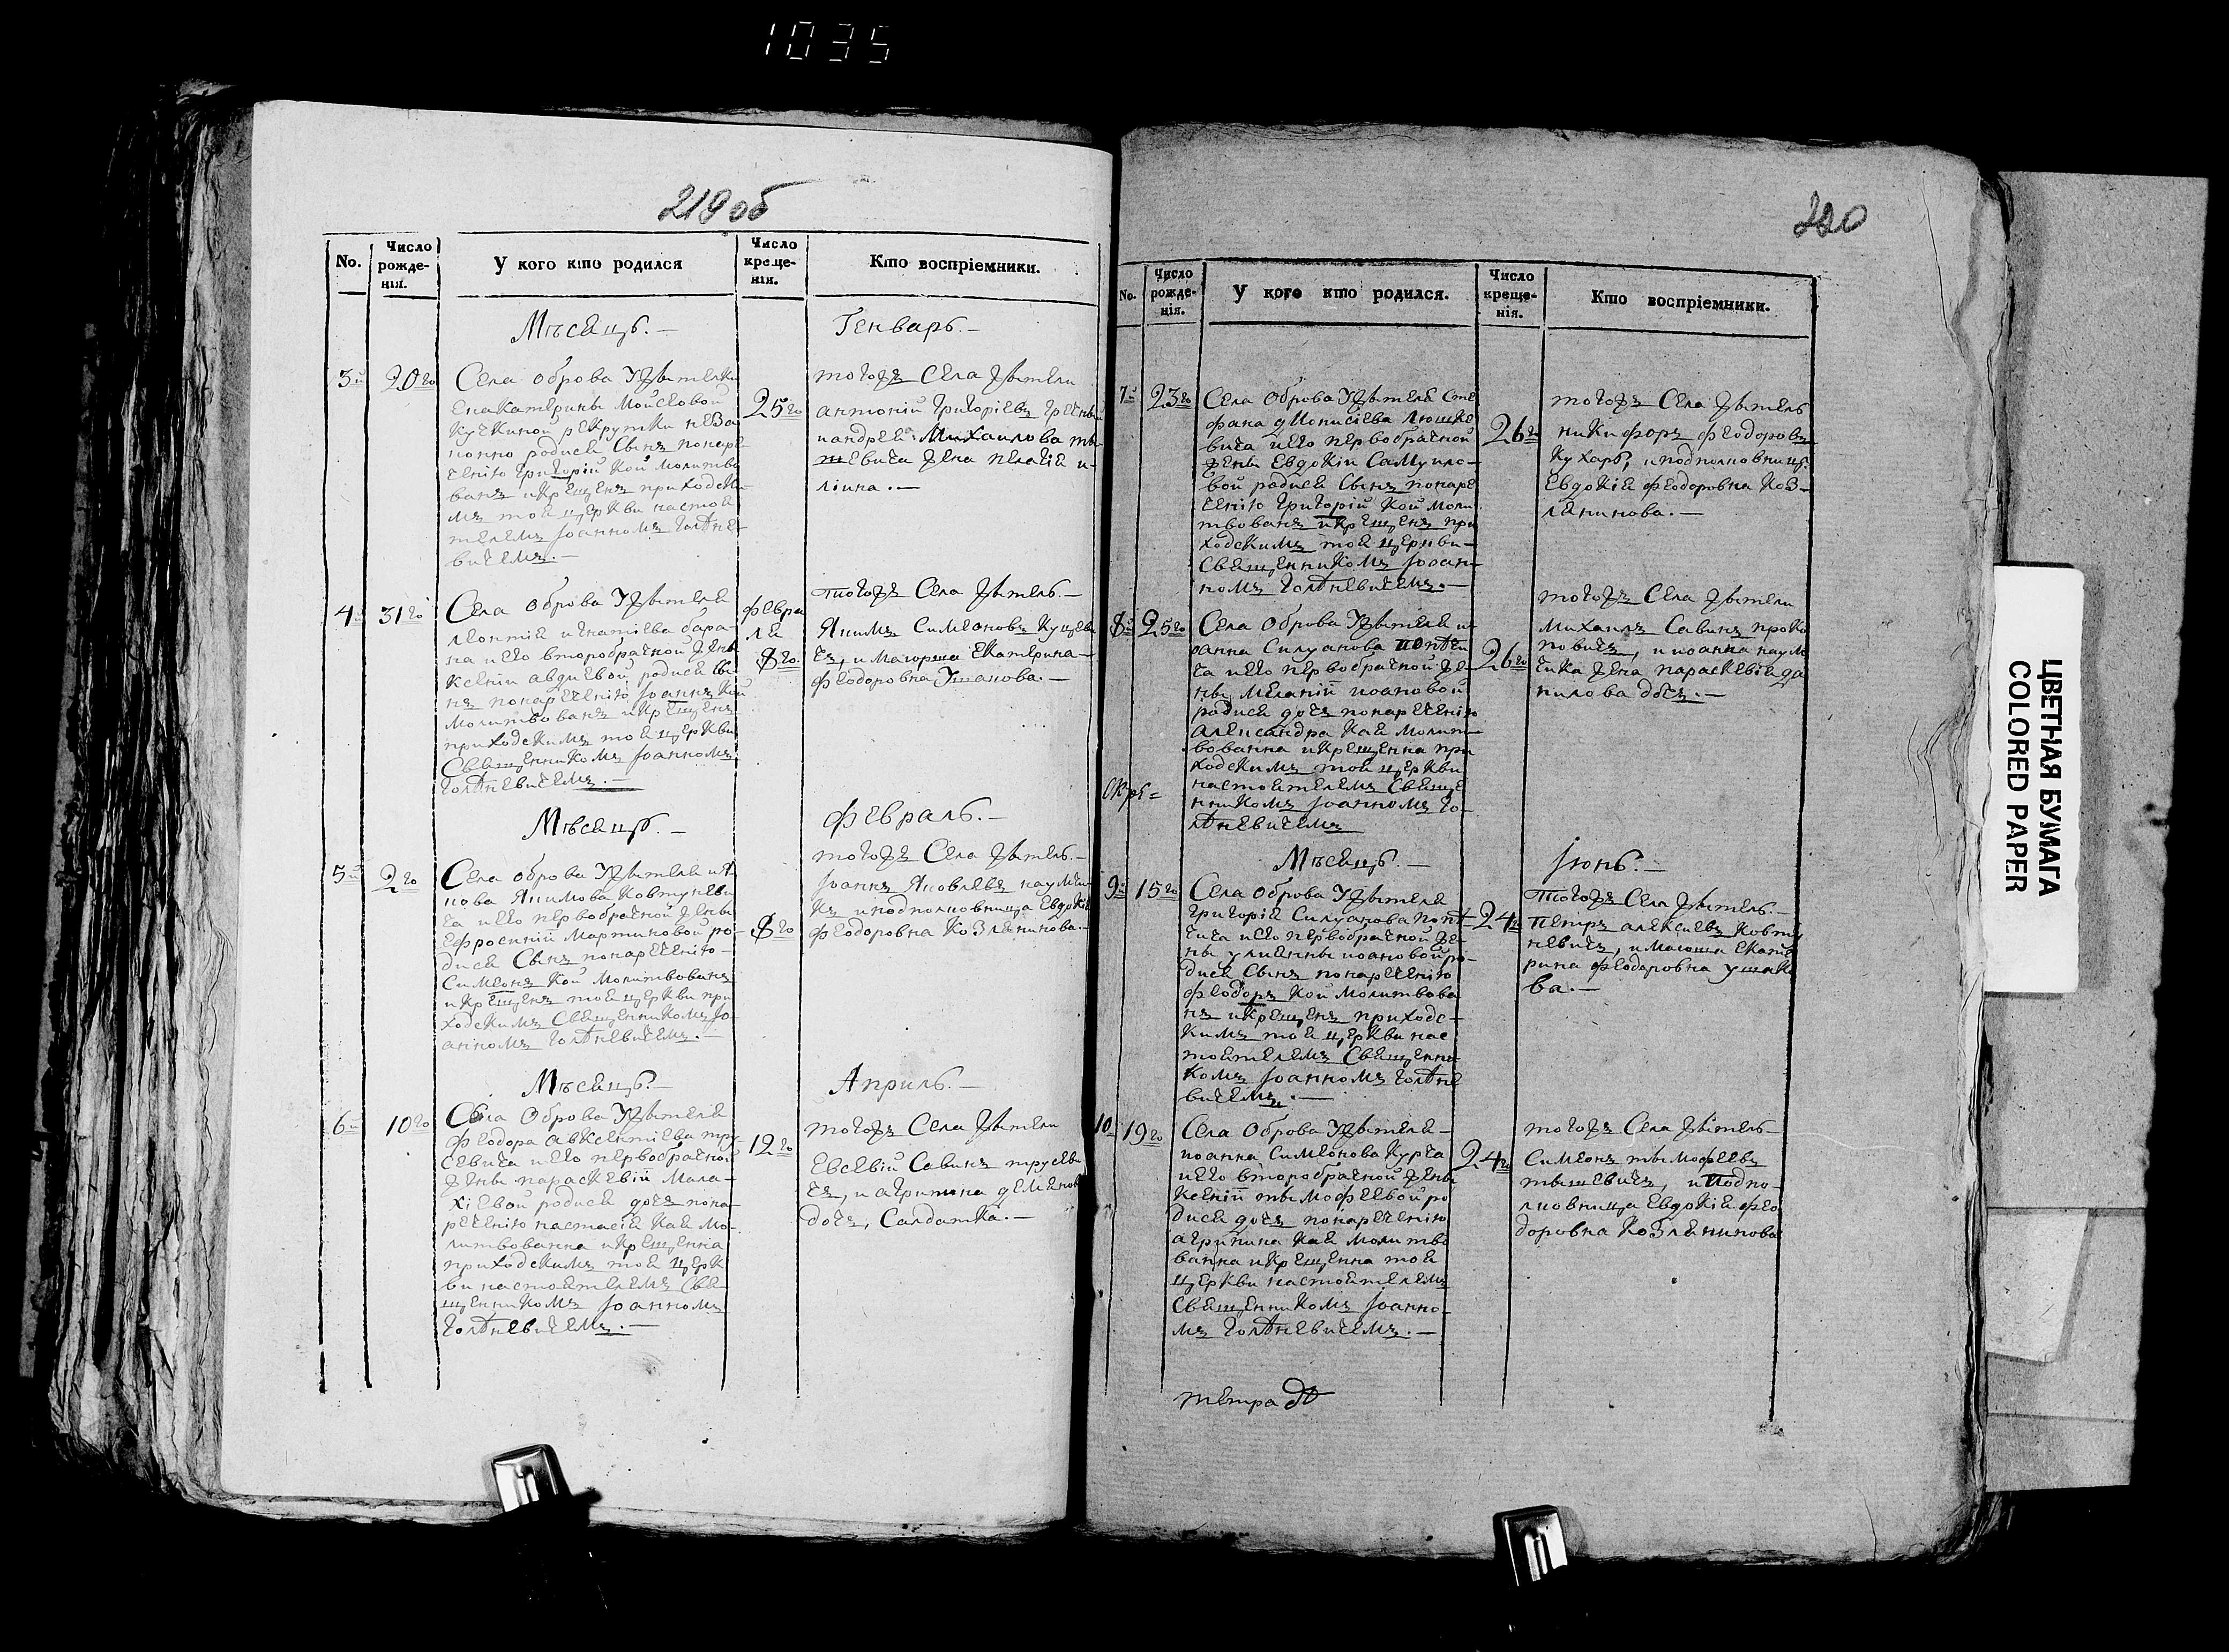 1035
219 об
No.
Число рожде-нія.
У кого кто родился
Число креще-нія.
Кто воспріемники.
Мѣсяцъ. —
Генварь. —
3й
20го
Села Оброва У жытелки
Екатерины Мойсеовой
Кучкиной рекрутки неза
конно родися Сынъ понаре
ченію Григорій кой молитво
ванъ икрещенъ приходски
мъ тоя церкви настоя
телемъ Іоанномъ Голѣне
вичемъ. —
25го
тогожъ Села жытели
антоній Григоріевъ
иандрея Михаилова ты
шевича жена пелагія и
лійна. —
4й
31го
Села Оброва У жытеля
леонтія игнатіева бара
на иего второбрачной жены
Ксеніи авдіевой родися Сы
нъ понареченію Іоаннъ Кой
молитвованъ икрещенъ
приходскимъ тоя церкви
Священникомъ Іоанномъ
Голѣневичемъ. —
февра
ля
8го
тогожъ Села жытель. —
Якимъ Симеоновъ Куцеви
чъ, и маіорша Екатерина
Феодоровна Ушакова. —
Мѣсяцъ. —
Февраль. —
5й
2го
Села Оброва У жытеля
Якимова Ковтуневи
ча иего первобрачной жены
Ефросиніи Мартиновой ро-
дися Сынъ понареченію —
Симеонъ Кой Молитвованъ
икрещенъ тоя церкви при
ходскимъ Священникомъ Іо
анномъ Голѣневичемъ. —
8го
тогожъ Села жытель. —
Іоаннъ Яковлевъ наумчи
къ иподполковница Евдокія
Феодоровна Козлянинова. —
Мѣсяцъ. —
Априль. —
6й
10го
Села Оброва У жытеля
Феодора Авксентіева тру
севича иего первобрачной
жены параскевіи Мала-
хіевой родися дочъ пона
реченію настасія Кая мо-
литвованна икрещенна
приходскимъ тоя церк
ви настоятелемъ Свя-
щенникомъ Іоанномъ
Голѣневичемъ. —
12го
тогожъ Села жытели
Евсевій Савинъ трусеви
чъ, и агрипина демянов
дочъ, Салдатка. —
220
No.
Число рожде-нія.
У кого кто родился.
Число креще-нія.
Кто воспріемники.
7й
23го
Села Оброва У жытеля Сте
фана дІонисіева Люшке
вича иего первобрачной
жены Евдокіи Самуило-
вой родися Сынъ понаре
ченію Григорій Кой моли
твованъ икрещенъ при
ходскимъ тоя церкви —
Священникомъ Іоан-
номъ Голѣневичемъ. —
26го
тогожъ Села жытель
никифоръ Феодоровъ
Кухаръ, иподполковниц
Евдокія Феодоровна Коз-
лянинова. —
8й
25го
Села Оброва У жытеля и
оанна Силуанова попѣчи
ча иего первобрачной же-
ны Меланіи иоановой
родися дочъ понареченію
Александра Кая Молит-
вованна икрещенна при
ходскимъ тоя церкви
настоятелемъ Свяще
нникомъ Іоанномъ Го-
лѣневичемъ
26го
тогожъ Села жытели
Михаилъ Савинъ проко
повичъ, и иоанна наум
чика жена параскевія да
нилова дочъ. —
Мѣсяцъ. —
Іюнь. —
9й
15го
Села Оброва У жытеля
Григорія Силуанова попѣ
чича иего первобрачной же-
ны улиянны иоановой ро-
дися Сынъ понареченію
Феодоръ Кой Молитвова
нъ икрещенъ приходс-
кимъ тоя церкви нас
тоятелемъ Священни
комъ Іоанномъ Голѣне
вичемъ. —
24го
тогожъ Села жытель. —
Петръ алексіевъ Ковту
невичъ, и маіорша Екате
рина Феодоровна ушако
ва. —
10
19го
Села Оброва У жытеля —
иоанна Симеонова Курча
иего второбрачной жены
Ксеніи тымофеевой ро
дися дочъ понареченію
агрипина Кая Молитво
ванна икрещенна тоя
церкви настоятелемъ
Священникомъ Іоанно-
мъ Голѣневичемъ. —
24го
тогожъ Села жытель —
Симеонъ тымофеевъ
тышевичъ, и Подпо-
лковница Евдокія Фео
доровна Козлянинова
тетра
ЦВЕТНАЯ БУМАГА
COLORED PAPER